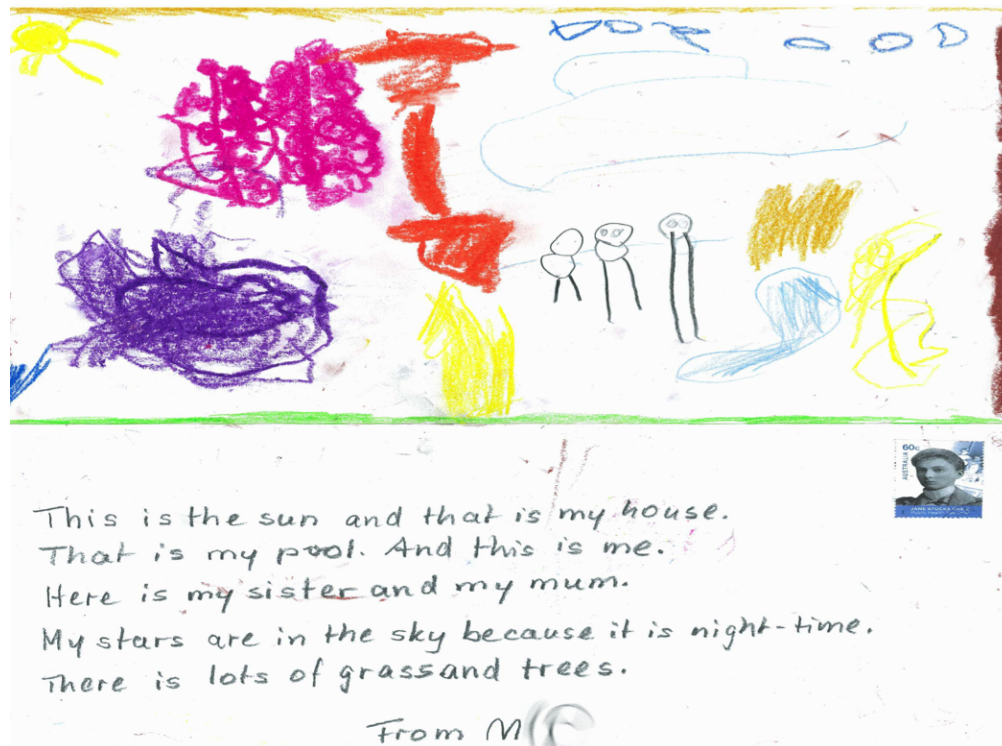 60c
AUSTRALIA
This is the sun and that is my house.
That is my pool. And this is me.
Here is my sister and my mum.
My stars are in the sky because it is night-time.
There is lots of grass and trees.
From M